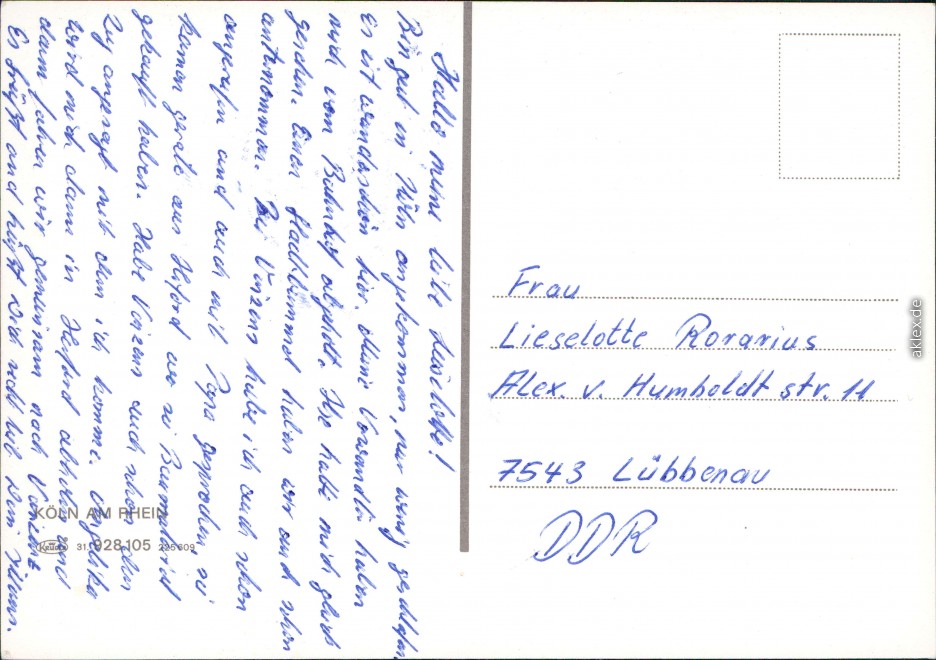 Hallo meine liebe Lieselotte!
Bin gut in Köln angekommen, nur wenig geschlafen
Es ist wunderschön hier. Meine Verwandte haben
mich vom Bahnhof abgeholt. Ilse habe mich gleich
gesehen. Einen Stadtbummel haben wir auch schon
unternommen. Bei Vinzens habe ich auch schon
angerufen und auch mit Papa gesprochen, sie
kamen gerade aus Herford wo sie Baumaterial
gekauft haben. Habe Vinzens auch schon den
Zug angesagt mit dem ich komme. Angelika
wird mich dann in Herford abholen und
dann fahren wir gemeinsam nach
Es grüßt und küßt Dich recht lieb Dein
KÖLN AM RHEIN
Krüger 31. 928105 225609
Frau
Lieselotte Rorarius
Alex. v. Humboldt str. 11
7543 Lübbenau
DDR
aklex.de